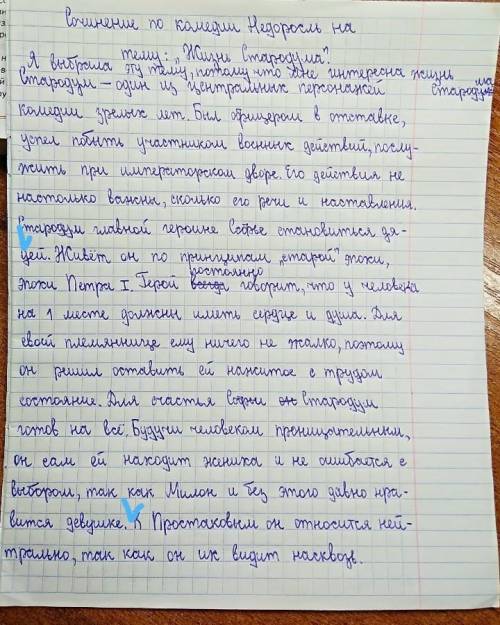 Сочинение по комедии Недоросль на
тему: „Жизнь Стародума".
Я выбрала эту тему, потому что мне интересна жизнь Стародума
Стародум – один из центральных персонажей
комедии зрелых лет. Был офицером в отставке,
успел побыть участником военных действий, послу-
жить при императорском дворе. Его действия не
настолько важны, сколько его речи и наставления.
Стародум главной героине Софье становиться дя-
дей. Живёт он по принципам „старой" эпохи,
эпохи Петра I. Герой постоянно говорит, что у человека
на 1 месте должны иметь сердце и душа. Для
своей племяннице ему ничего не жалко, поэтому
он решил оставить ей нажитое с трудом
состояние. Для счастья Софьи он Стародум
готов на всё. Будучи человеком проницательным,
он сам ей находит жениха и не ошибается с
выбором, так как Милон и без этого давно нра-
вится девушке. К Простаковым он относится ней-
трально, так как он их видит насквозь.